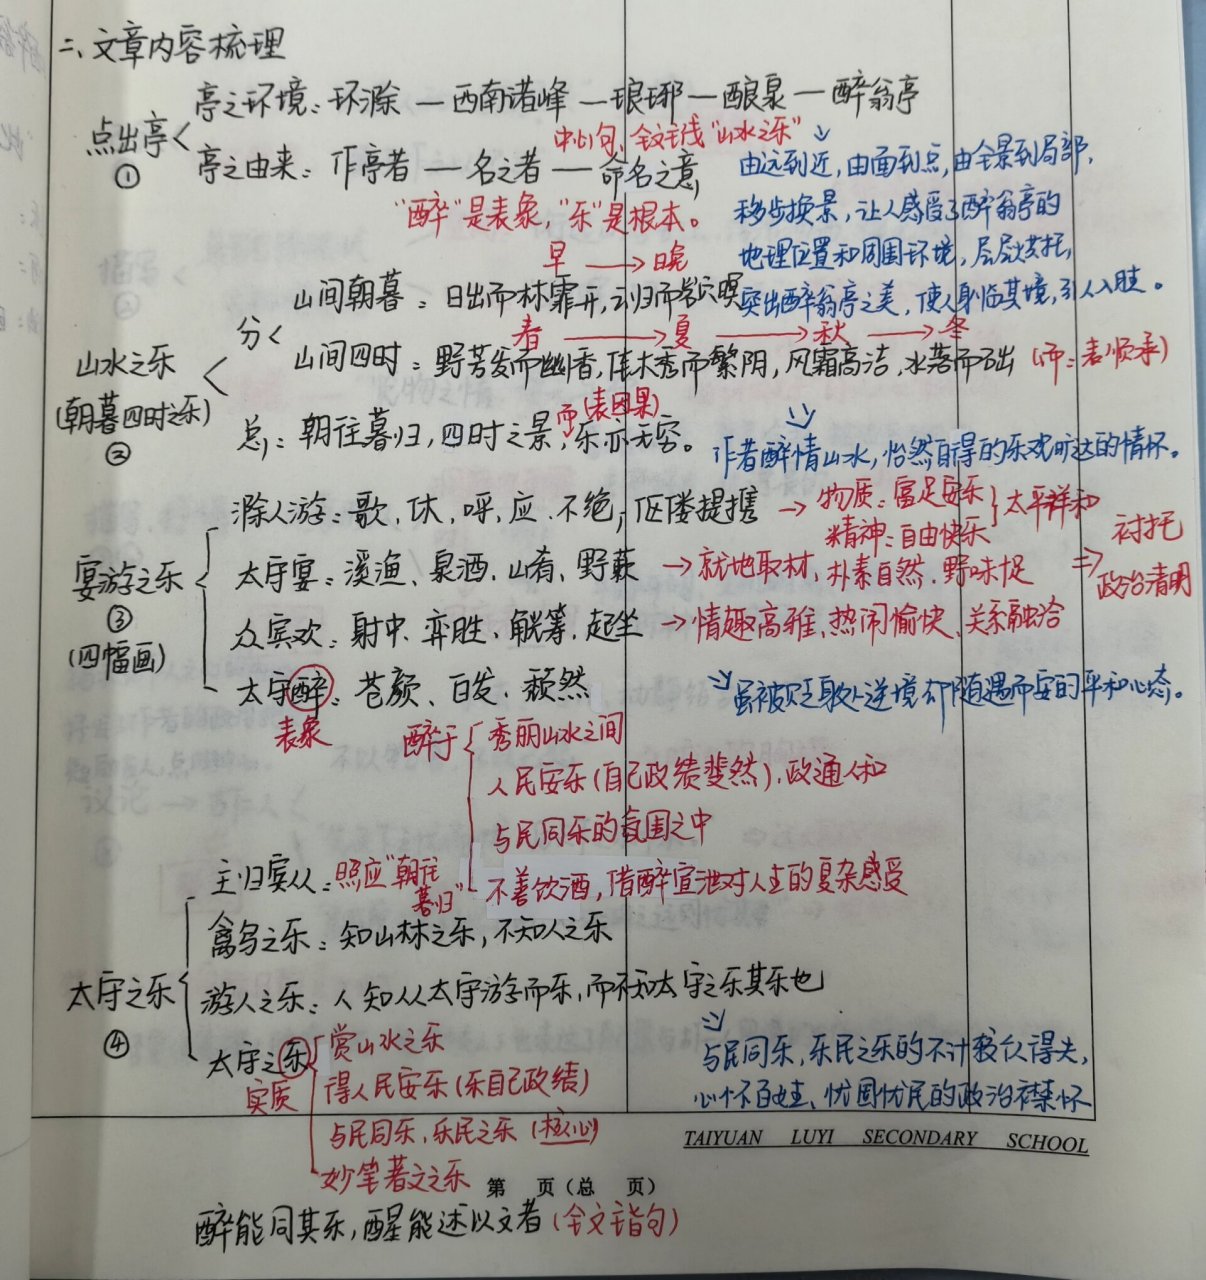 二、文章内容梳理
亭之环境：环滁 — 西南诸峰 — 琅琊 — 酿泉 — 醉翁亭
点出亭
①
中心句，全文主线“山水之乐”
亭之由来：作亭者 — 名之者 — 命名之意
“醉”是表象，“乐”是根本。
由远到近，由面到点，由全景到局部，
移步换景，让人感受了醉翁亭的
地理位置和周围环境，层层烘托，
突出醉翁亭之美，使人身临其境，引人入胜。
早 → 晚
山间朝暮：日出而林霏开，云归而岩穴暝
分
春 → 夏 → 秋 → 冬
山间四时：野芳发而幽香，佳木秀而繁阴，风霜高洁，水落而石出（而：表顺承）
山水之乐
(朝暮四时之乐)
②
而（表因果）
总：朝往暮归，四时之景，乐亦无穷。
作者醉情山水，怡然自得的乐观旷达的情怀。
滁人游：歌、休、呼、应、不绝，伛偻提携 → 物质：富足安乐
精神：自由快乐
太平祥和
太守宴：溪渔、泉酒、山肴、野蔌 → 就地取材，朴素自然，野味足
⇒ 衬托
政治清明
宴游之乐
③
(四幅画)
众宾欢：射中、弈胜、觥筹、起坐 → 情趣高雅，热闹愉快、关系融洽
太守醉：苍颜、白发、颓然
虽被贬职处逆境却随遇而安的平和心态。
表象
醉于
秀丽山水之间
人民安乐（自己政绩斐然），政通人和
与民同乐的氛围之中
不善饮酒，借醉宣泄对人生的复杂感受
主归宾从：照应“朝往
暮归”
禽鸟之乐：知山林之乐，不知人之乐
太守之乐
④
游人之乐：人知从太守游而乐，而不知太守之乐其乐也
太守之乐
实质
赏山水之乐
得人民安乐（乐自己政绩）
与民同乐，乐民之乐（核心）
妙笔著文之乐
与民同乐，乐民之乐的不计较个人得失，
心怀百姓、忧国忧民的政治襟怀
TAIYUAN LUYI SECONDARY SCHOOL
第 页（总 页）
醉能同其乐，醒能述以文者（全文主旨句）